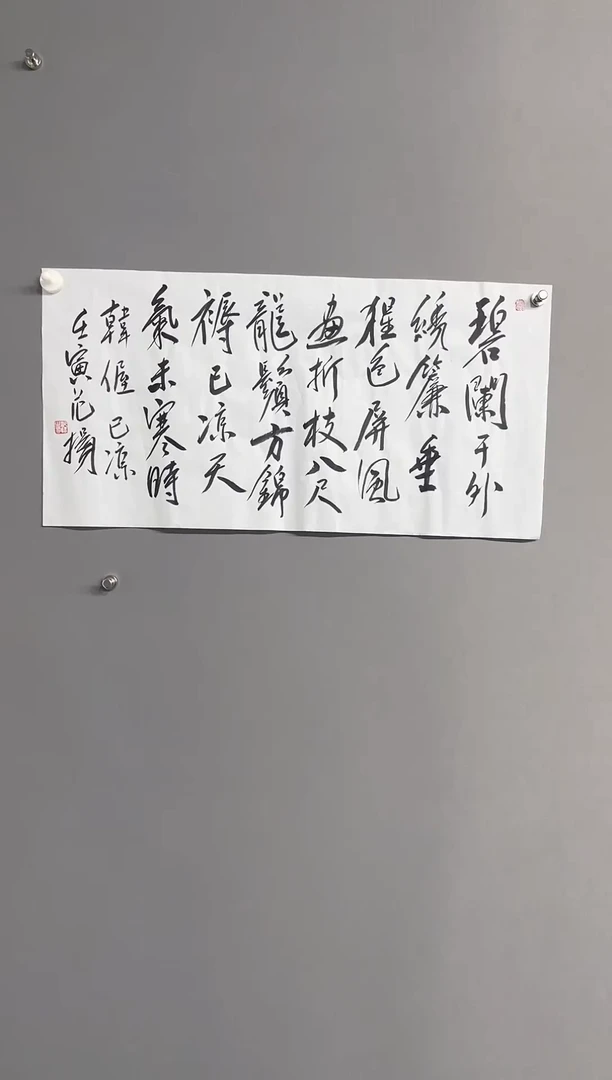 碧闌干外
繡簾垂
猩色屏風
畫折枝八尺
龍鬚方錦
褥已涼天
氣未寒時
韓偓已涼
壬寅范揚